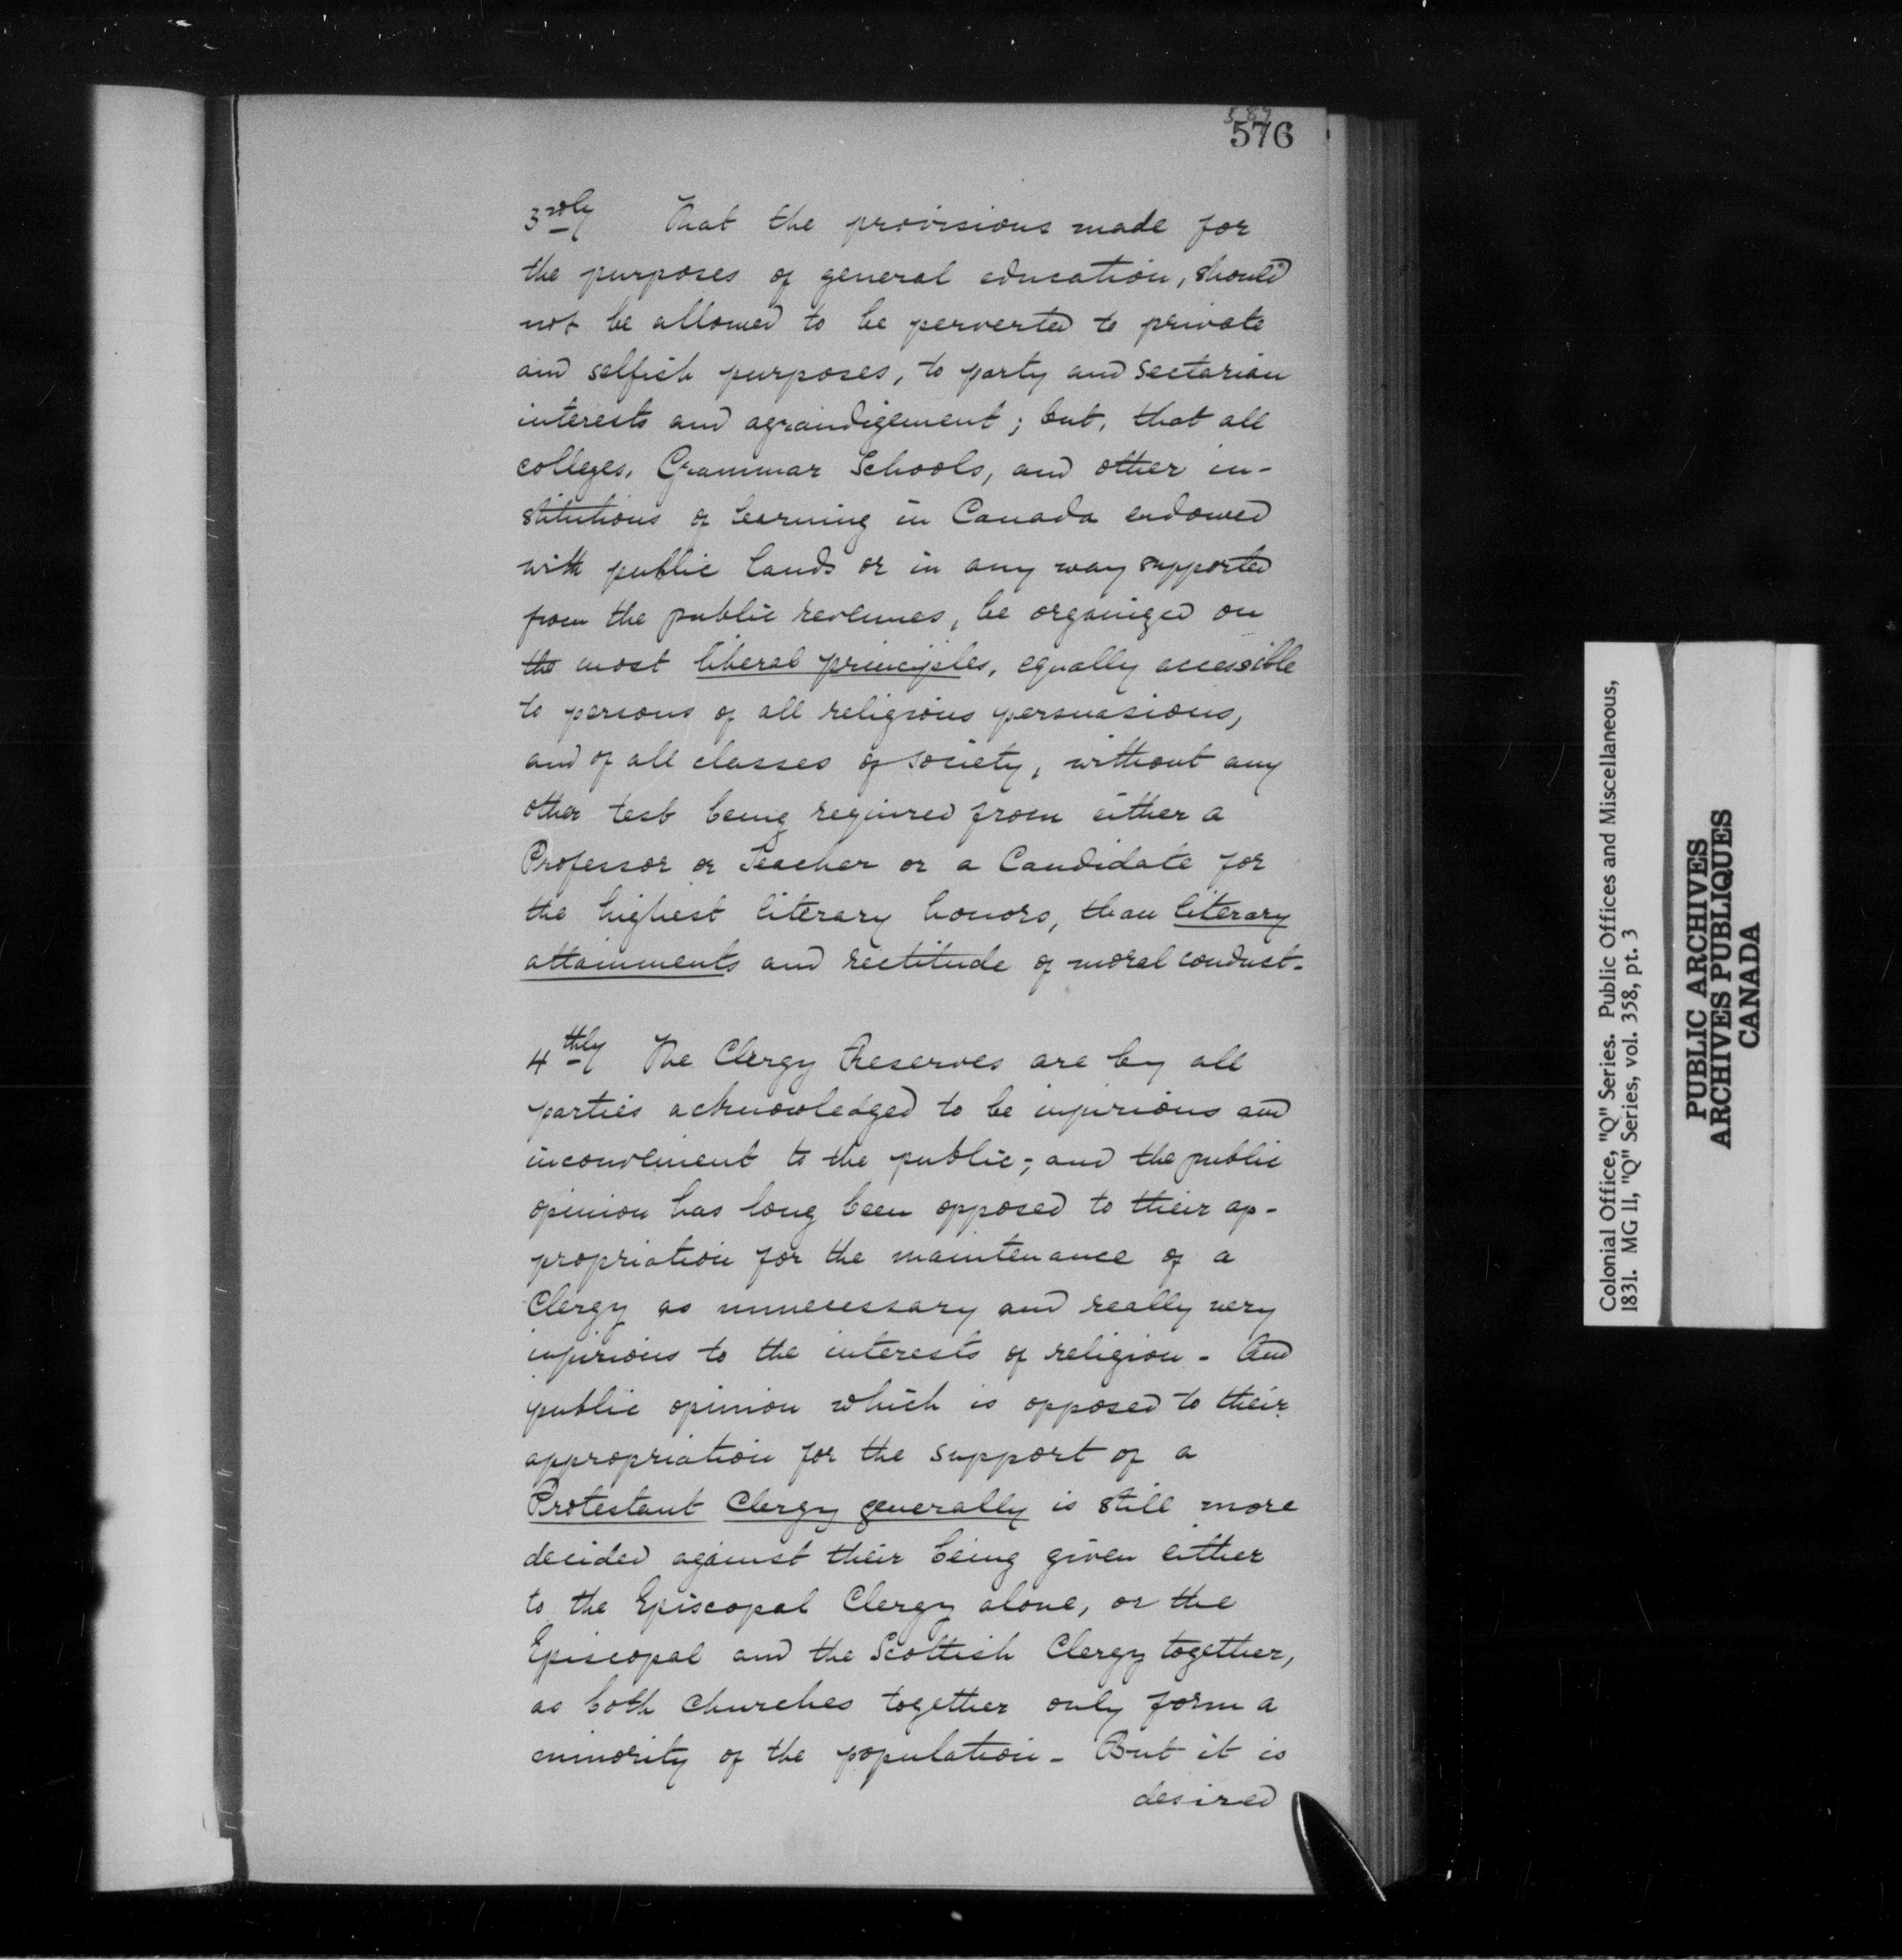 576
3rdly That the provisions made for
the purposes of general education, should
not be allowed to be perverted to private
and selfish purposes, to party and sectarian
interests and agrandizement; but, that all
colleges, Grammar Schools, and other in-
stitutions of learning in Canada endowed
with public lands or in any way supported
from the public revenues, be organized on
the most liberal principles, equally accessible
to persons of all religious persuasions,
and of all classes of society, without any
other test being required from either a
Professor or Teacher or a Candidate for
the highest literary honors, than literary
attainments and rectitude of moral conduct.
4thly The Clergy Reserves are by all
parties acknowledged to be injurious and
inconvenient to the public; and the public
opinion has long been opposed to their ap-
propriation for the maintenance of a
Clergy as unnecessary and really very
injurious to the interests of religion - And
public opinion which is opposed to their
appropriation for the support of a
Protestant Clergy generally is still more
decided against their being given either
to the Episcopal Clergy alone, or the
Episcopal and the Scottish Clergy together,
as both Churches together only form a
minority of the population - But it is
desired
Colonial Office, "Q" Series. Public Offices and Miscellaneous,
1831. MG 11, "Q" Series, vol. 358, pt. 3
PUBLIC ARCHIVES
ARCHIVES PUBLIQUES
CANADA